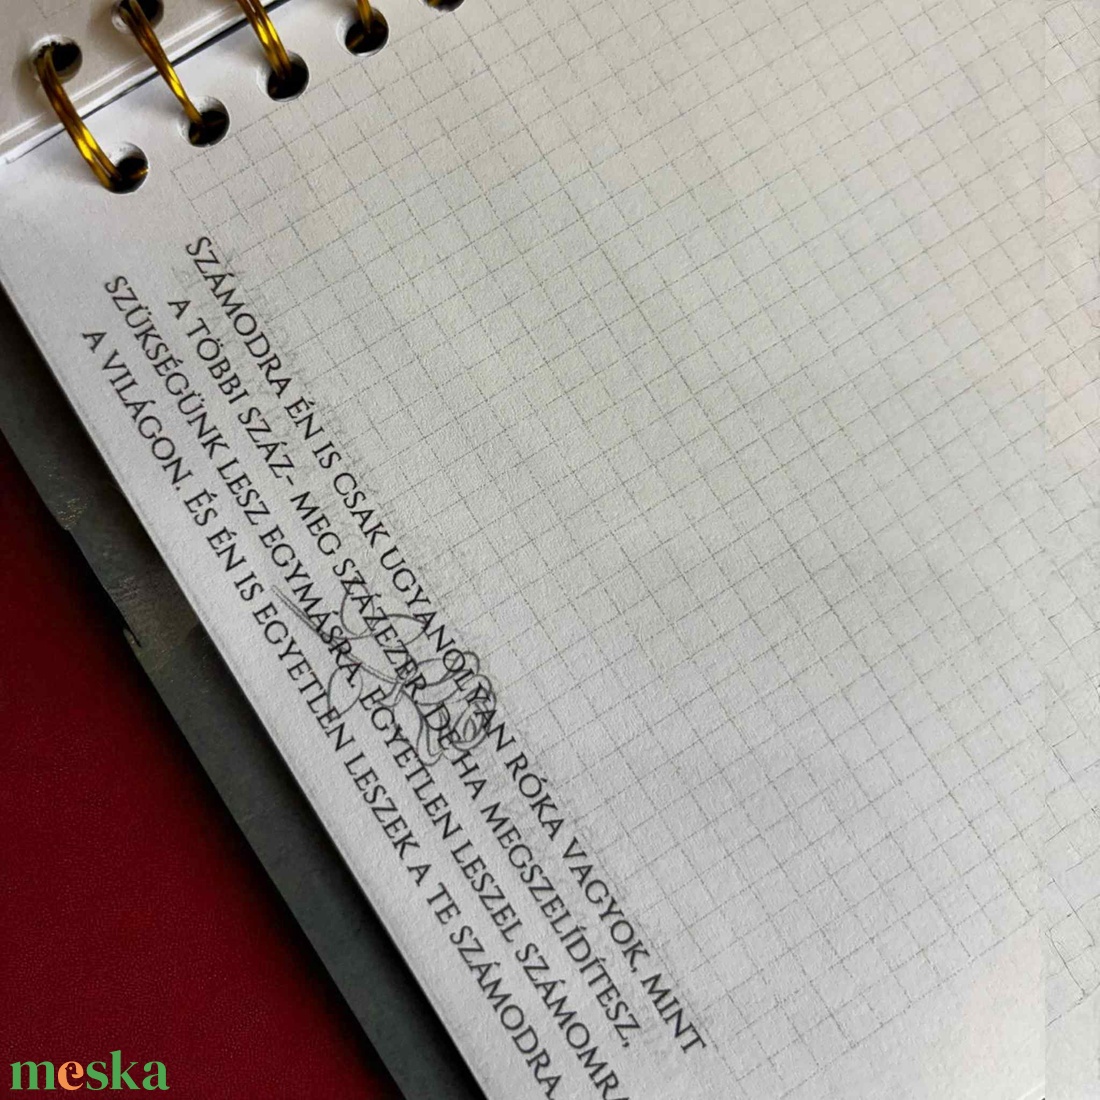 SZÁMODRA ÉN IS CSAK UGYANOLYAN RÓKA VAGYOK, MINT
A TÖBBI SZÁZ- MEG SZÁZEZER. DE HA MEGSZELÍDÍTESZ,
SZÜKSÉGÜNK LESZ EGYMÁSRA. EGYETLEN LESZEL SZÁMOMRA
A VILÁGON. ÉS ÉN IS EGYETLEN LESZEK A TE SZÁMODRA.
meska